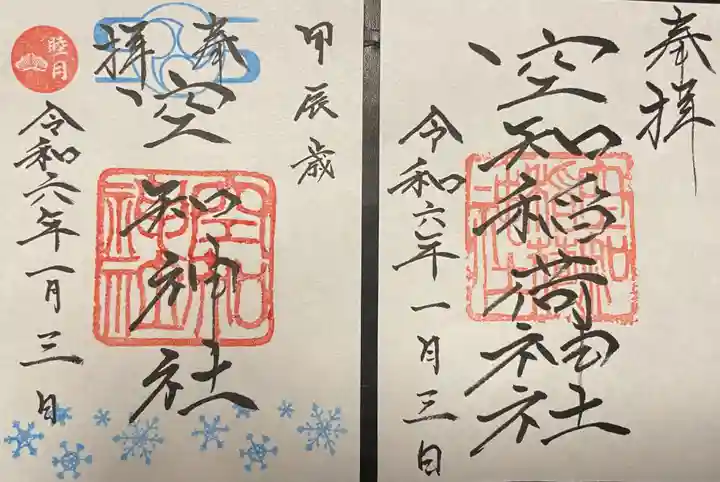 奉拝
空知稲荷神社
令和六年一月三日
甲辰歳
奉拝
空知神社
空知神社
令和六年一月三日
睦月